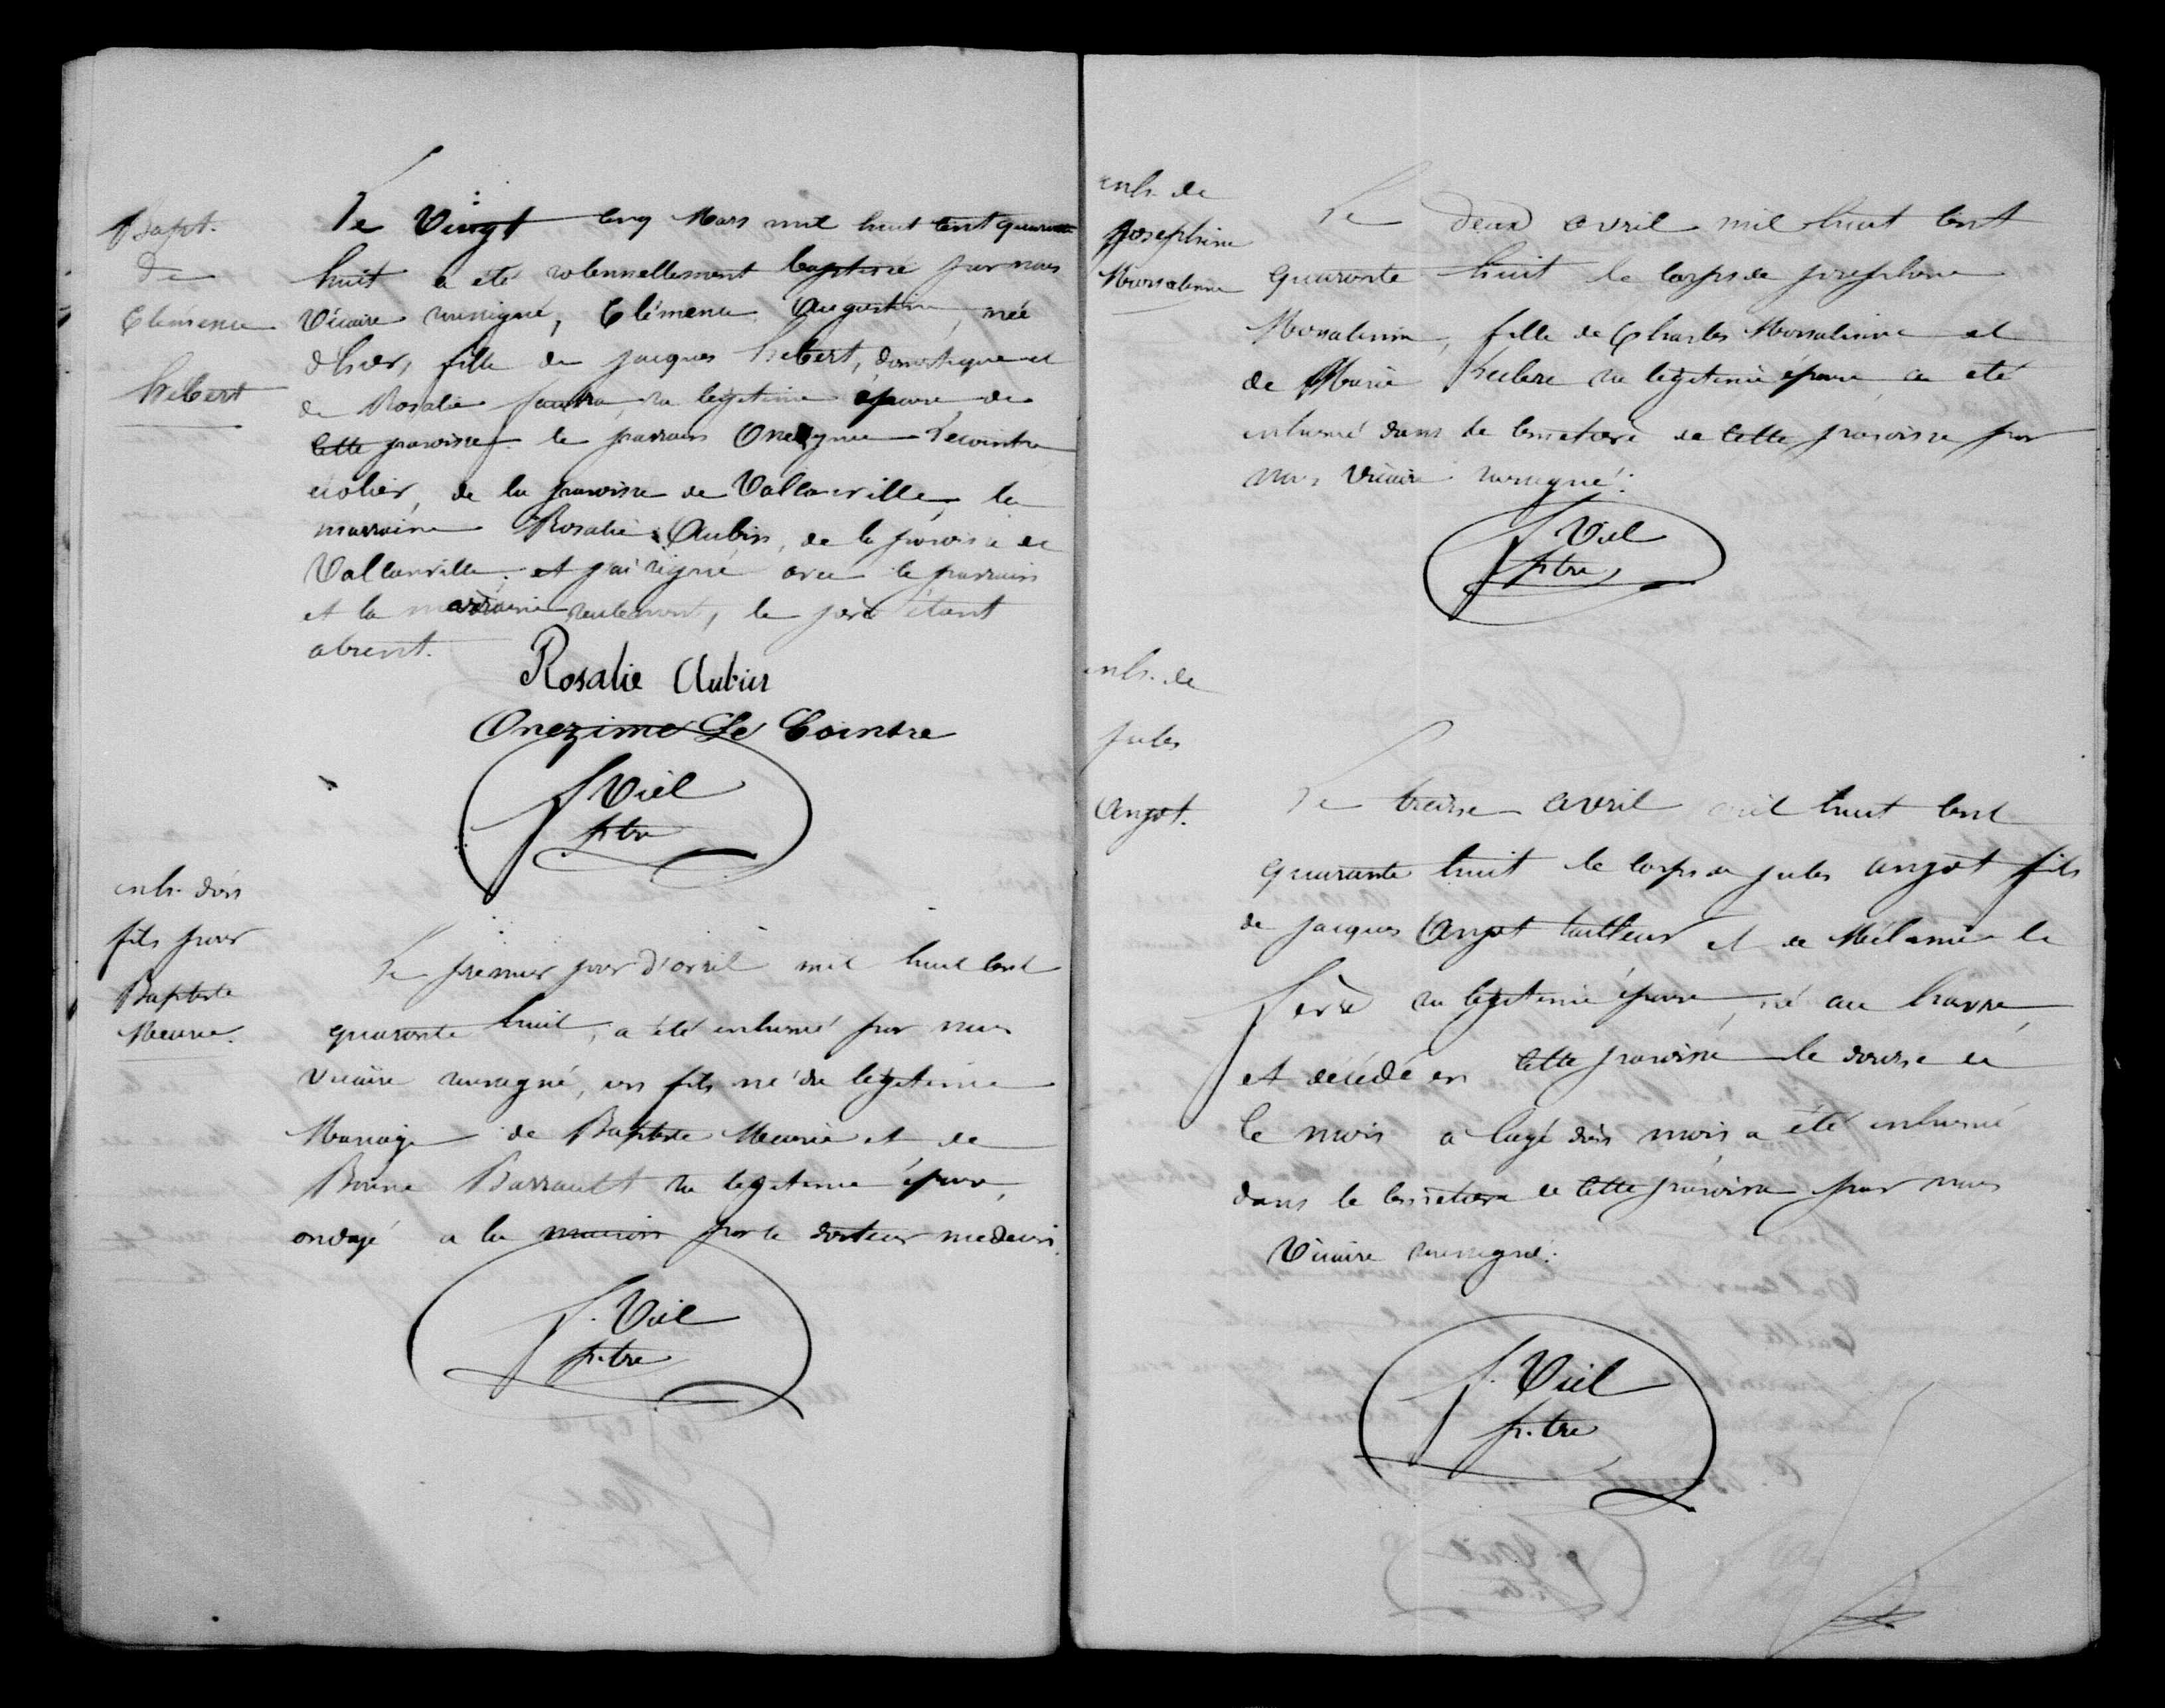 Bapt.
de
Clémence
hebert
Le Vingt cinq Mars mil huit cent quarante
huit a été solennellement baptisée par nous
Vicaire soussigné, Clémence Augustine, née
d'hier, fille de jacques hebert, domestique et
de Rosalie sa légitime épouse, de
cette paroisse. le parrain Onezyme Lecointre
écolier, de la paroisse de Vattanville, la
marraine Rosalie Aubin, de la paroisse de
Vattanville, et j'ai signé avec le parrain
et la marraine seulement, le père étant
absent.
Rosalie Aubin
Onezime Le Cointre
J Viel
ptre
inh. d'un
fils pour
Baptiste
Meurie.
Le premier jour d'avril mil huit cent
quarante huit, a été inhumé par nous
vicaire soussigné, un fils né du légitime
Mariage de Baptiste Meurie et de
Bonne Barrault sa légitime épouse,
ondoyé a la maison par le docteur médecin.
J. Viel
p.tre
inh. de
josephine
Morsalinne
Le deux avril mil huit cent
quarante huit le corps de josephine
Morsalinne, fille de Charles Morsalinne et
de Marie sa légitime épouse, a été
inhumé dans le cimetiere de cette paroisse par
nous Vicaire soussigné.
J Viel
ptre
inh. de
jules
Angot.
Le treize avril mil huit cent
quarante huit le corps de jules angot fils
de jacques Angot tailleur et de Mélanie le
sa légitime épouse, né au havre,
et décédé en cette paroisse le douze de
ce mois a l'agé dix mois, a été inhumé
dans le cimetiere de cette paroisse par nous
Vicaire soussigné.
J. Viel
p.tre